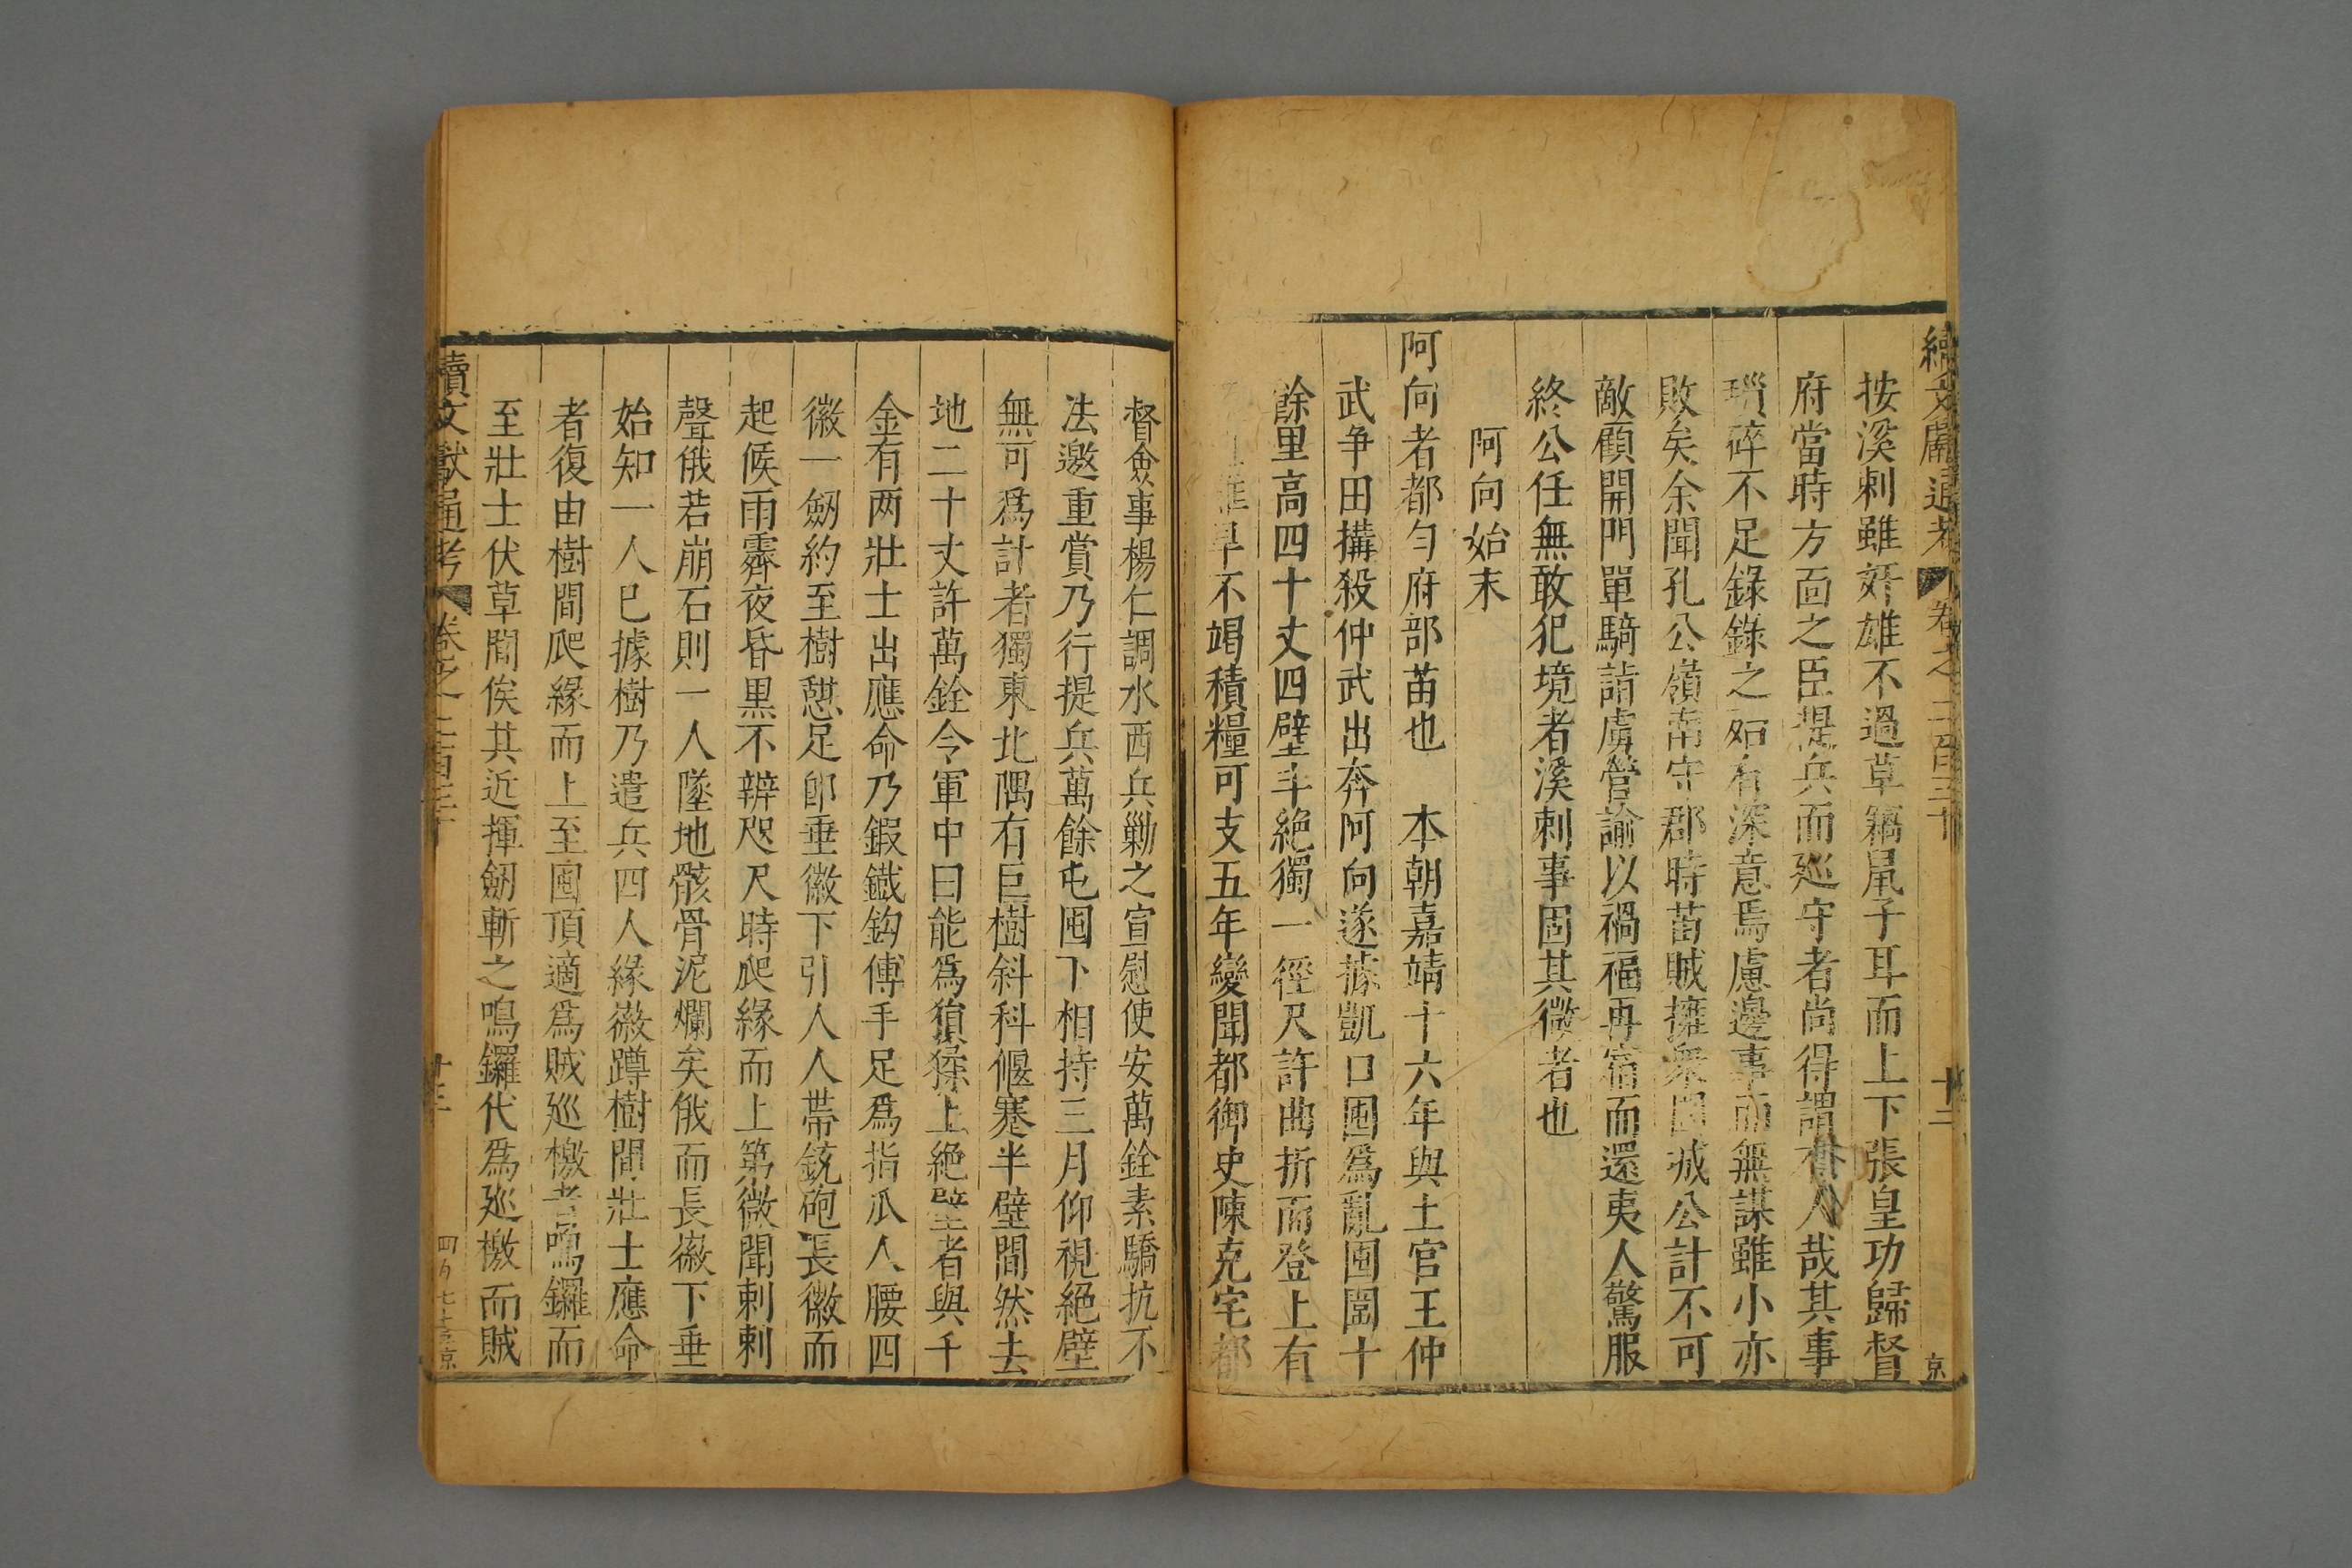 續文獻通考 卷之二百三十 十二 京
按溪剌雖奸雄不過草竊鼠子耳而上下張皇功歸督
府當時方面之臣提兵而廵守者尚得謂有人哉其事
瑣碎不足錄錄之如有深意焉慮邊事而無謀雖小亦
敗矣余聞孔公嶺南守郡時苗賊擁衆圍城公計不可
敵顧開門單騎請虜營諭以禍福再宿而還夷人驚服
終公任無敢犯境者溪剌事固其微者也
阿向始末
阿向者都勻府部苗也 本朝嘉靖十六年與土官王仲
武争田搆殺仲武出奔阿向遂據凱口囤爲亂囤圍十
餘里高四十丈四壁斗絕獨一徑尺許曲折而登上有
旱不竭積糧可支五年變聞都御史陳克宅都
督僉事楊仁調水西兵勦之宣慰使安萬銓素驕抗不
法邀重賞乃行提兵萬餘屯囤下相持三月仰視絕壁
無可爲計者獨東北隅有巨樹斜科偃蹇半壁間然去
地二十丈許萬銓令軍中曰能爲猿猱上絕壁者與千
金有两壯士出應命乃鍜鐵鈎傅手足爲指爪人腰四
徽一劒約至樹憇足卽垂徽下引人人帶銃砲長徽而
起候雨霽夜昏黒不辨咫尺時爬緣而上第微聞剌剌
聲俄若崩石則一人墜地骸骨泥爛矣俄而長徽下垂
始知一人已據樹乃遣兵四人緣徽蹲樹間壯士應命
者復由樹間爬緣而上至囤頂適爲賊廵檄者鳴鑼而
至壯士伏草間俟其近揮劒斬之鳴鑼代爲廵檄而賊
續文獻通考 卷之二百三十 十三 四百七十三 京